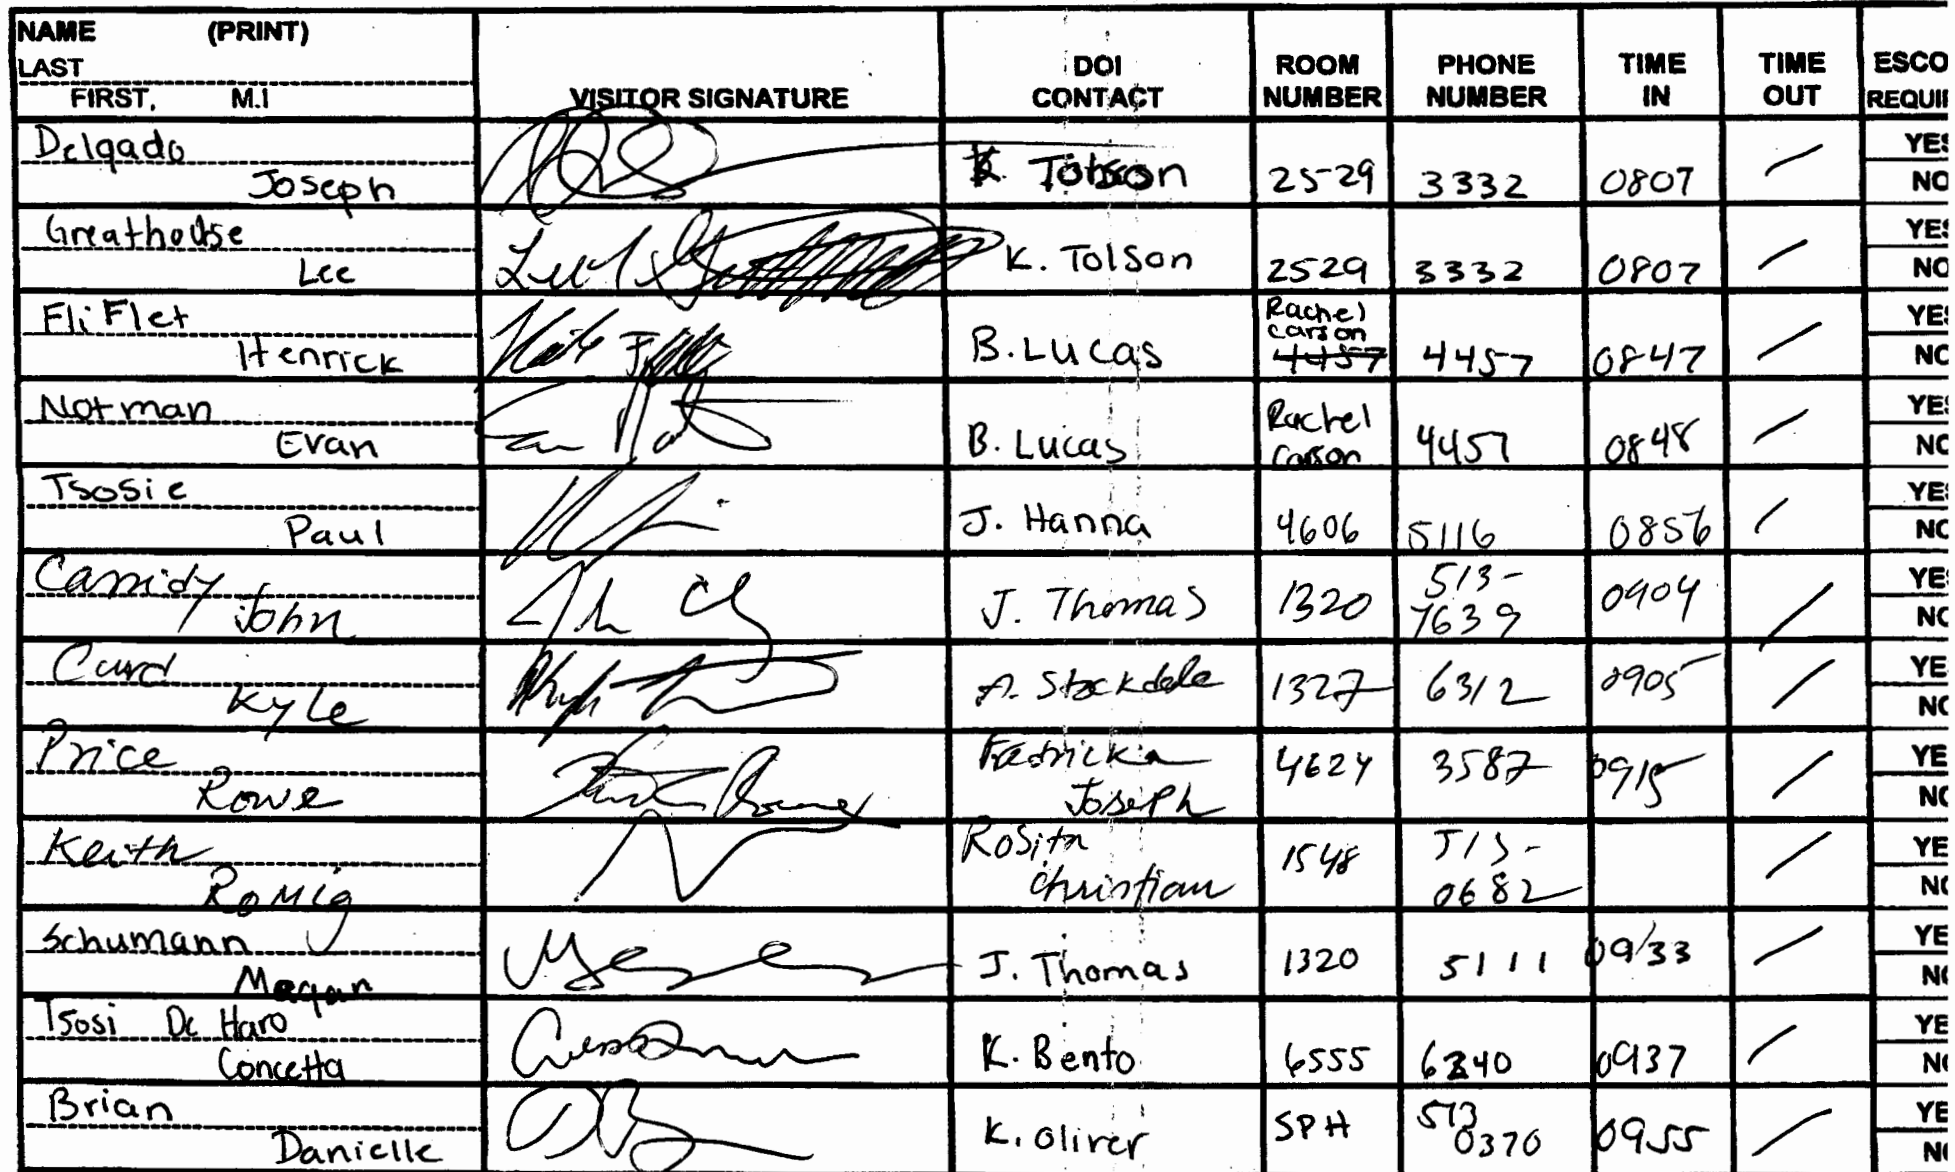 NAME (PRINT)
LAST
FIRST, M.I
VISITOR SIGNATURE
DOI
CONTACT
ROOM
NUMBER
PHONE
NUMBER
TIME
IN
TIME
OUT
ESCO
REQUI
Delgado
Joseph
K. Tolson 2529 3332 0807
YES
NO
Greathouse
Lee
K. Tolson 2529 3332 0807
YES
NO
Fliflet
Henrick
B. Lucas
Rachel
Carson
4457
4457 0847
YES
NO
Notman
Evan
B. Lucas
Rachel
Carson
4457 0848
YES
NO
Tsosie
Paul
J. Hanna 4606 5116 0856
YES
NO
Cassidy
John
J. Thomas 1320
513-
7639
0904
YES
NO
Curd
Kyle
A. Stockdale 1327 6312 0905
YE
NO
Price
Rowe
Fedricka
Joseph
4624 3587 0915
YE
NO
Keith
Romig
Rosita
Christian
1548
513-
0682
YE
NO
Schumann
Megan
J. Thomas 1320 5111 0933
YE
NO
Tsosi De Haro
Concetta
K. Bento 6555 6240 0937
YE
NO
Brian
Danielle
K. Oliver SPH
513
0370
0955
YE
NO